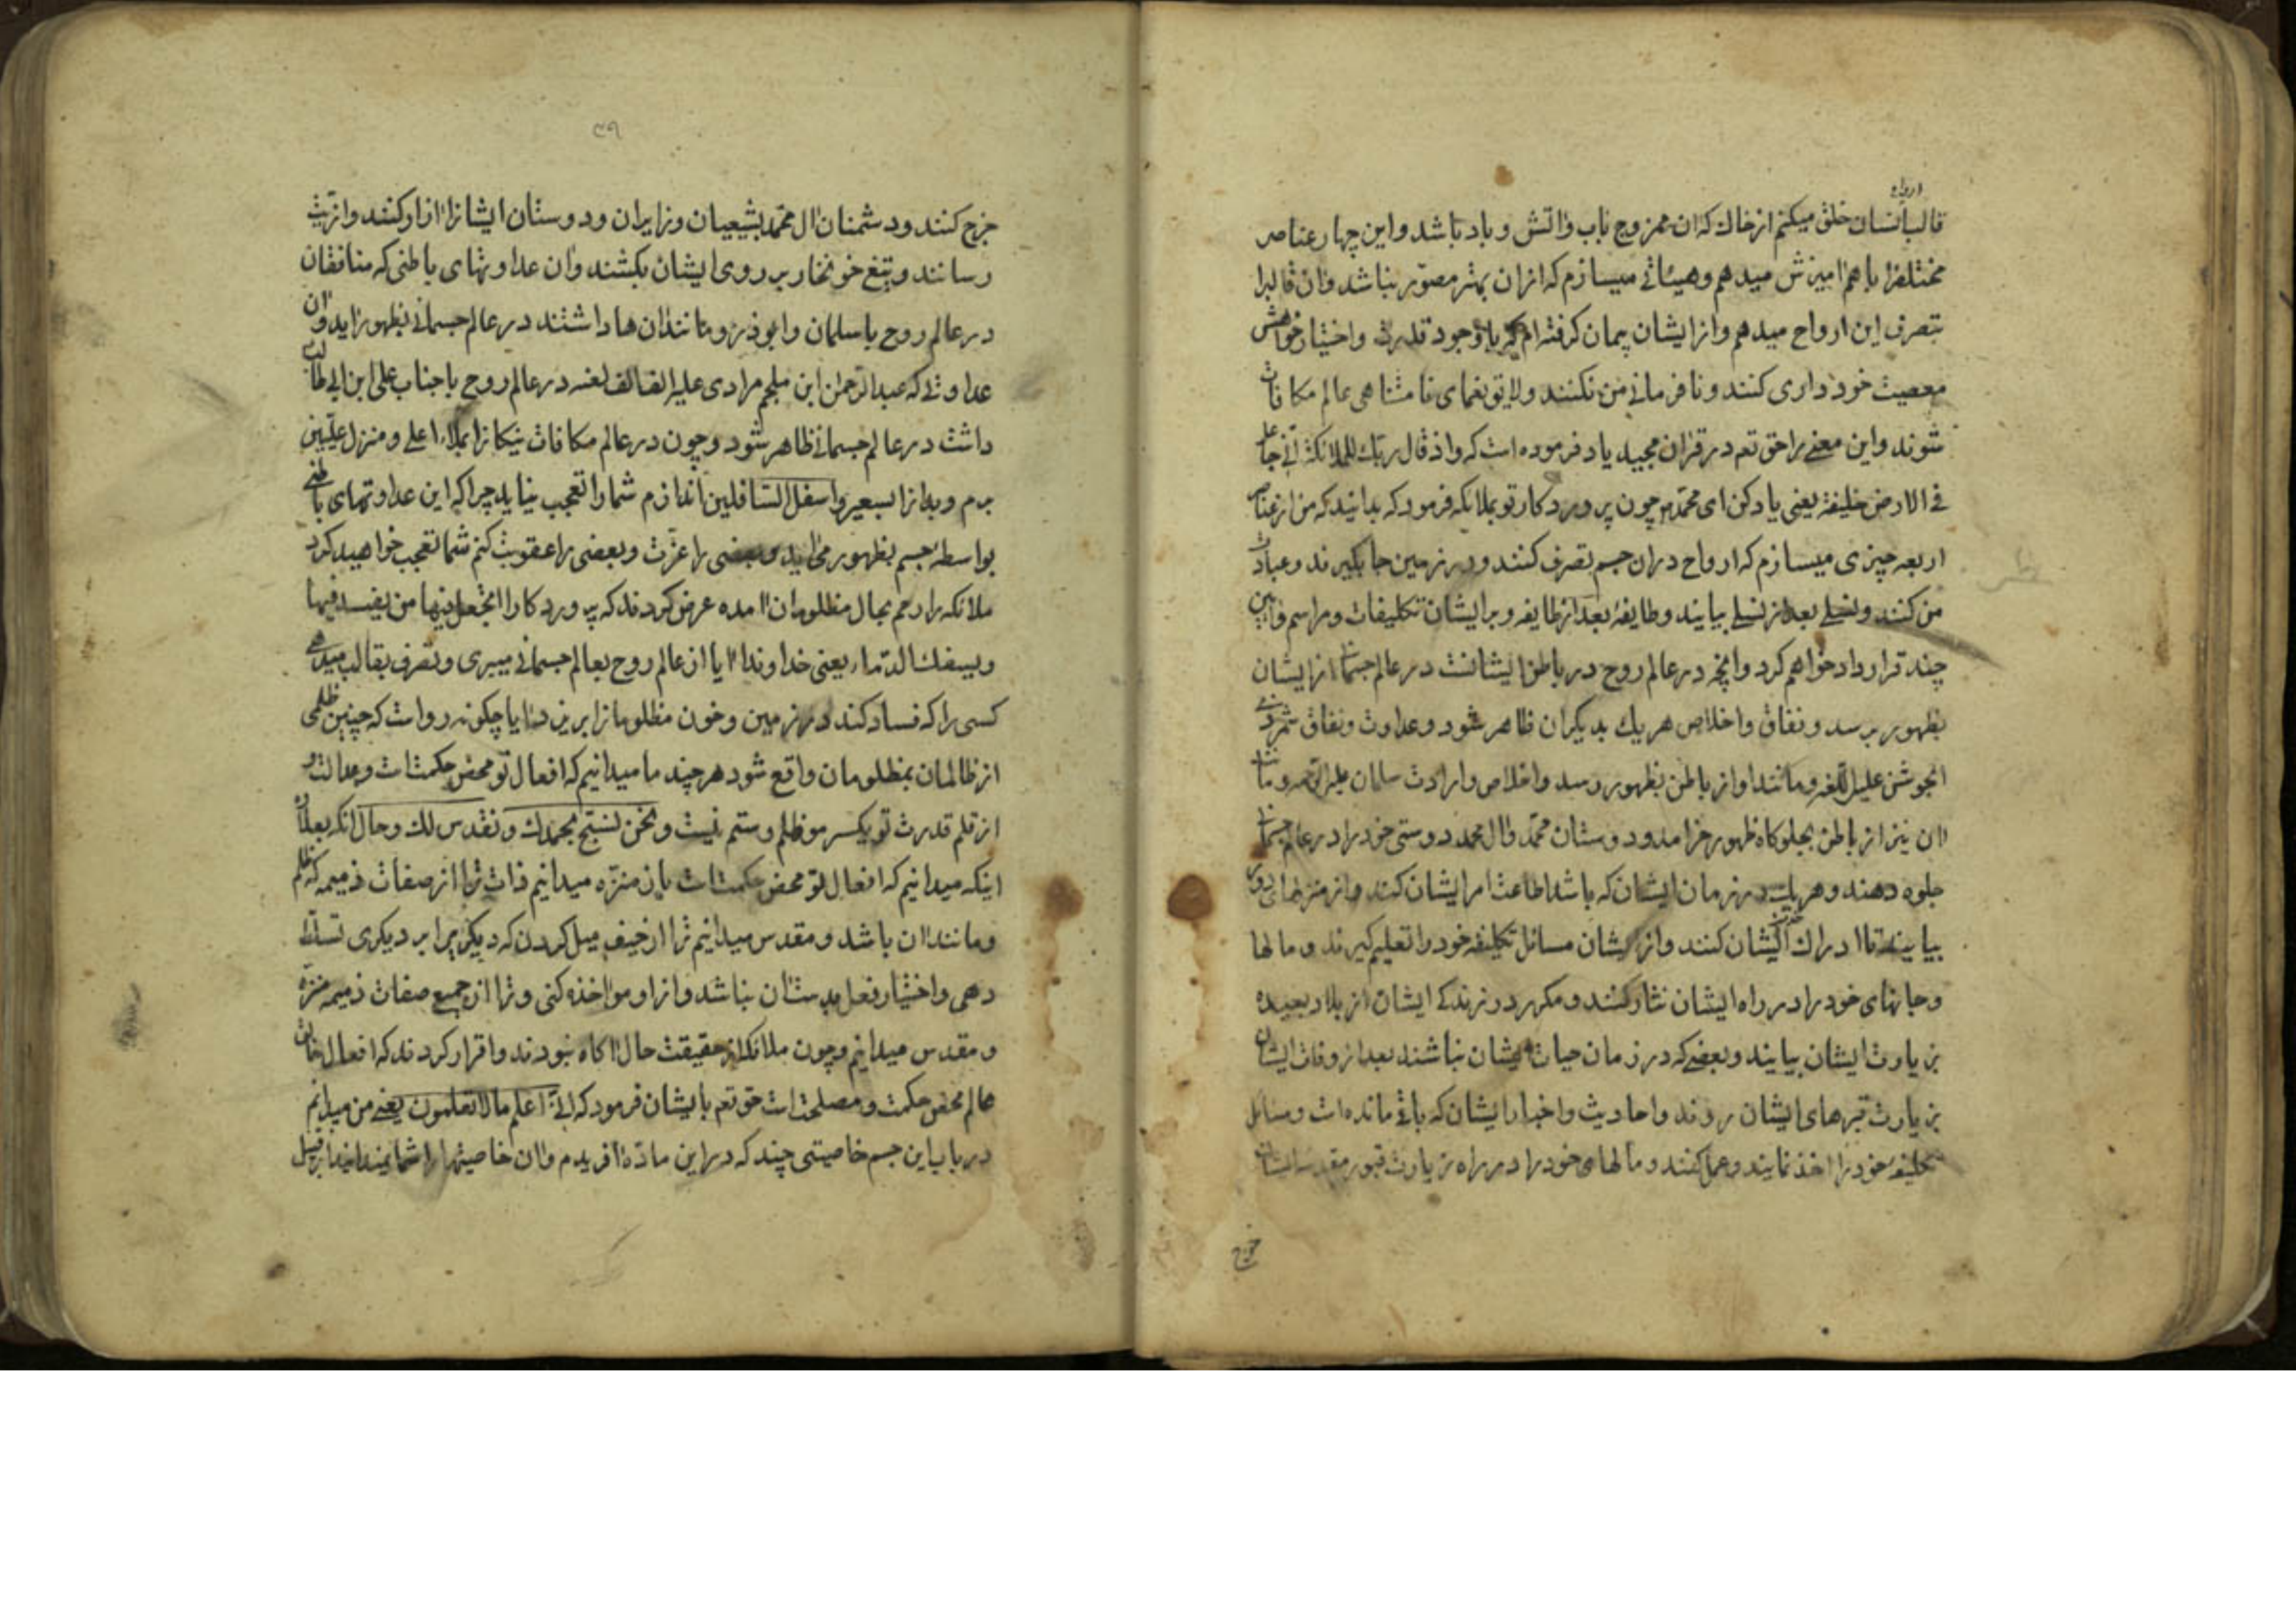 ارواح
قالب انسان خلق میکنم از خاك که ان ممزوج باب واتش و باد باشد و این چهار عناصر
مختلفرا باهم امیزش میدهم وهیئاتی میسازم که ازان بهتر مصور نباشد وان قالبرا
بتصرف این ارواح میدهم وازایشان پیمان کرفته ام که باوجود قدرت واختیار خواهش
معصیت خود داری کنند و نافرمانی من نکنند ولایق نعمای نامتناهی عالم مکافات
شوند واین معنی را حق تعم در قران مجید یاد فرموده است که واذ قال ربك للملائکة انی جاعل
فی الارض خلیفة یعنی یاد کن ای محمد چون پروردکار تو بملائکه فرمود که بدانید که من از عناصر
اربعه چیزی میسازم که ارواح دران جسم تصرف کنند ودر زمین جا بکیرند وعبادت
من کنند ونسلی بعد از نسلی بیایند وطایفهٔ بعد از طایفه وبرایشان تکلیفات ومراسم
چند قرارداد خواهم کرد وانچه در عالم روح در باطن ایشانست در عالم جسمانی ازایشان
بظهور برسد ونفاق واخلاص هریك بدیکران ظاهر شود وعداوت ونفاق شمر ذی
الجوشن علیه اللعنه ومانند او از باطن بظهور رسد واخلاص وارادت سلمان علیه الرحمه ومانند
ان نیز از باطن بجلوکاه ظهور خرامد ودوستان محمد وال محمد دوستی خودرا در عالم جسمانی
جلوه دهند وهریك در زمان ایشان که باشد اطاعت امر ایشان کنند واز منزلهای دور
بیایند تا ادراك ایشان کنند واز ایشان مسائل تکلیفه خودرا تعلیم کیرند ومالها
وجانهای خودرا در راه ایشان نثار کنند ومکرر در زندکی ایشان از بلاد بعیده
بزیارت ایشان بیایند وبعضی که در زمان حیات ایشان نباشند بعد از وفات ایشان
بزیارت قبرهای ایشان روند واحادیث واخبار ایشان که باقی مانده است ومسائل
تکلیفه خودرا اخذ نمایند وعمل کنند ومالهای خودرا در راه زیارت قبور مقدسه ایشان
خرج
۳۹
خرج کنند ودشمنان ال محمد بشیعیان وزایران ودوستان ایشانرا ازار کنند واذیت
رسانند وتیغ خونخوار بر روی ایشان بکشند وان عداوتهای باطنی که منافقان
در عالم روح باسلمان وابوذر ومانندان ها داشتند در عالم جسمانی بظهور اید وان
عداوتی که عبدالرحمن ابن ملجم مرادی علیه الف الف لعنه در عالم روح باجناب علی ابن ابی طالب
داشت در عالم جسمانی ظاهر شود وچون در عالم مکافات نیکانرا بملاء اعلی ومنزل علیین
برم وبدانرا بسعیر واسفل السافلین اندازم شمارا تعجب نیاید چرا که این عداوتهای باطنی
بواسطه جسم بظهور می اید وبعضی را عزت وبعضی را عقوبت کنم شما تعجب خواهید کرد
ملائکه را رحم بحال مظلومان امده عرض کردند که پروردکارا اتجعل فیها من یفسد فیها
ویسفك الدماء یعنی خداوندا ایا از عالم روح بعالم جسمانی میبری وتصرف بقالب میدهی
کسی را که فساد کند در زمین وخون مظلومانرا بریزد ایا چکونه رواست که چنین ظلمی
از ظالمان بمظلومان واقع شود هرچند ما میدانیم که افعال تو محض حکمتست وعدالت و
از قلم قدرت تو یکسر مو ظلم وستم نیست ونحن نسبح بحمدك ونقدس لك وحال انکه بعلاوه
اینکه میدانیم که افعال تو محض حکمتست بان منزه میدانیم ذات ترا از صفات ذمیمه که ظلم
ومانند ان باشد ومقدس میدانیم ترا از حیف میل کردن که دیکریرا بر دیکری تسلط
دهی واختیار فعل بدستان نباشد وازاو مواخذه کنی وترا از جمیع صفات ذمیمه منزه
ومقدس میدانیم وچون ملائکه از حقیقت حال اکاه نبودند واقرار کردند که افعال خالق
عالم محض حکمت ومصلحت است حق تعم بایشان فرمود که انی اعلم مالا تعلمون یعنی من میدانم
در باب این جسم خاصیتی چند که در این مادهٔ افریدم وان خاصیتهارا شما نمیدانید از قبیل